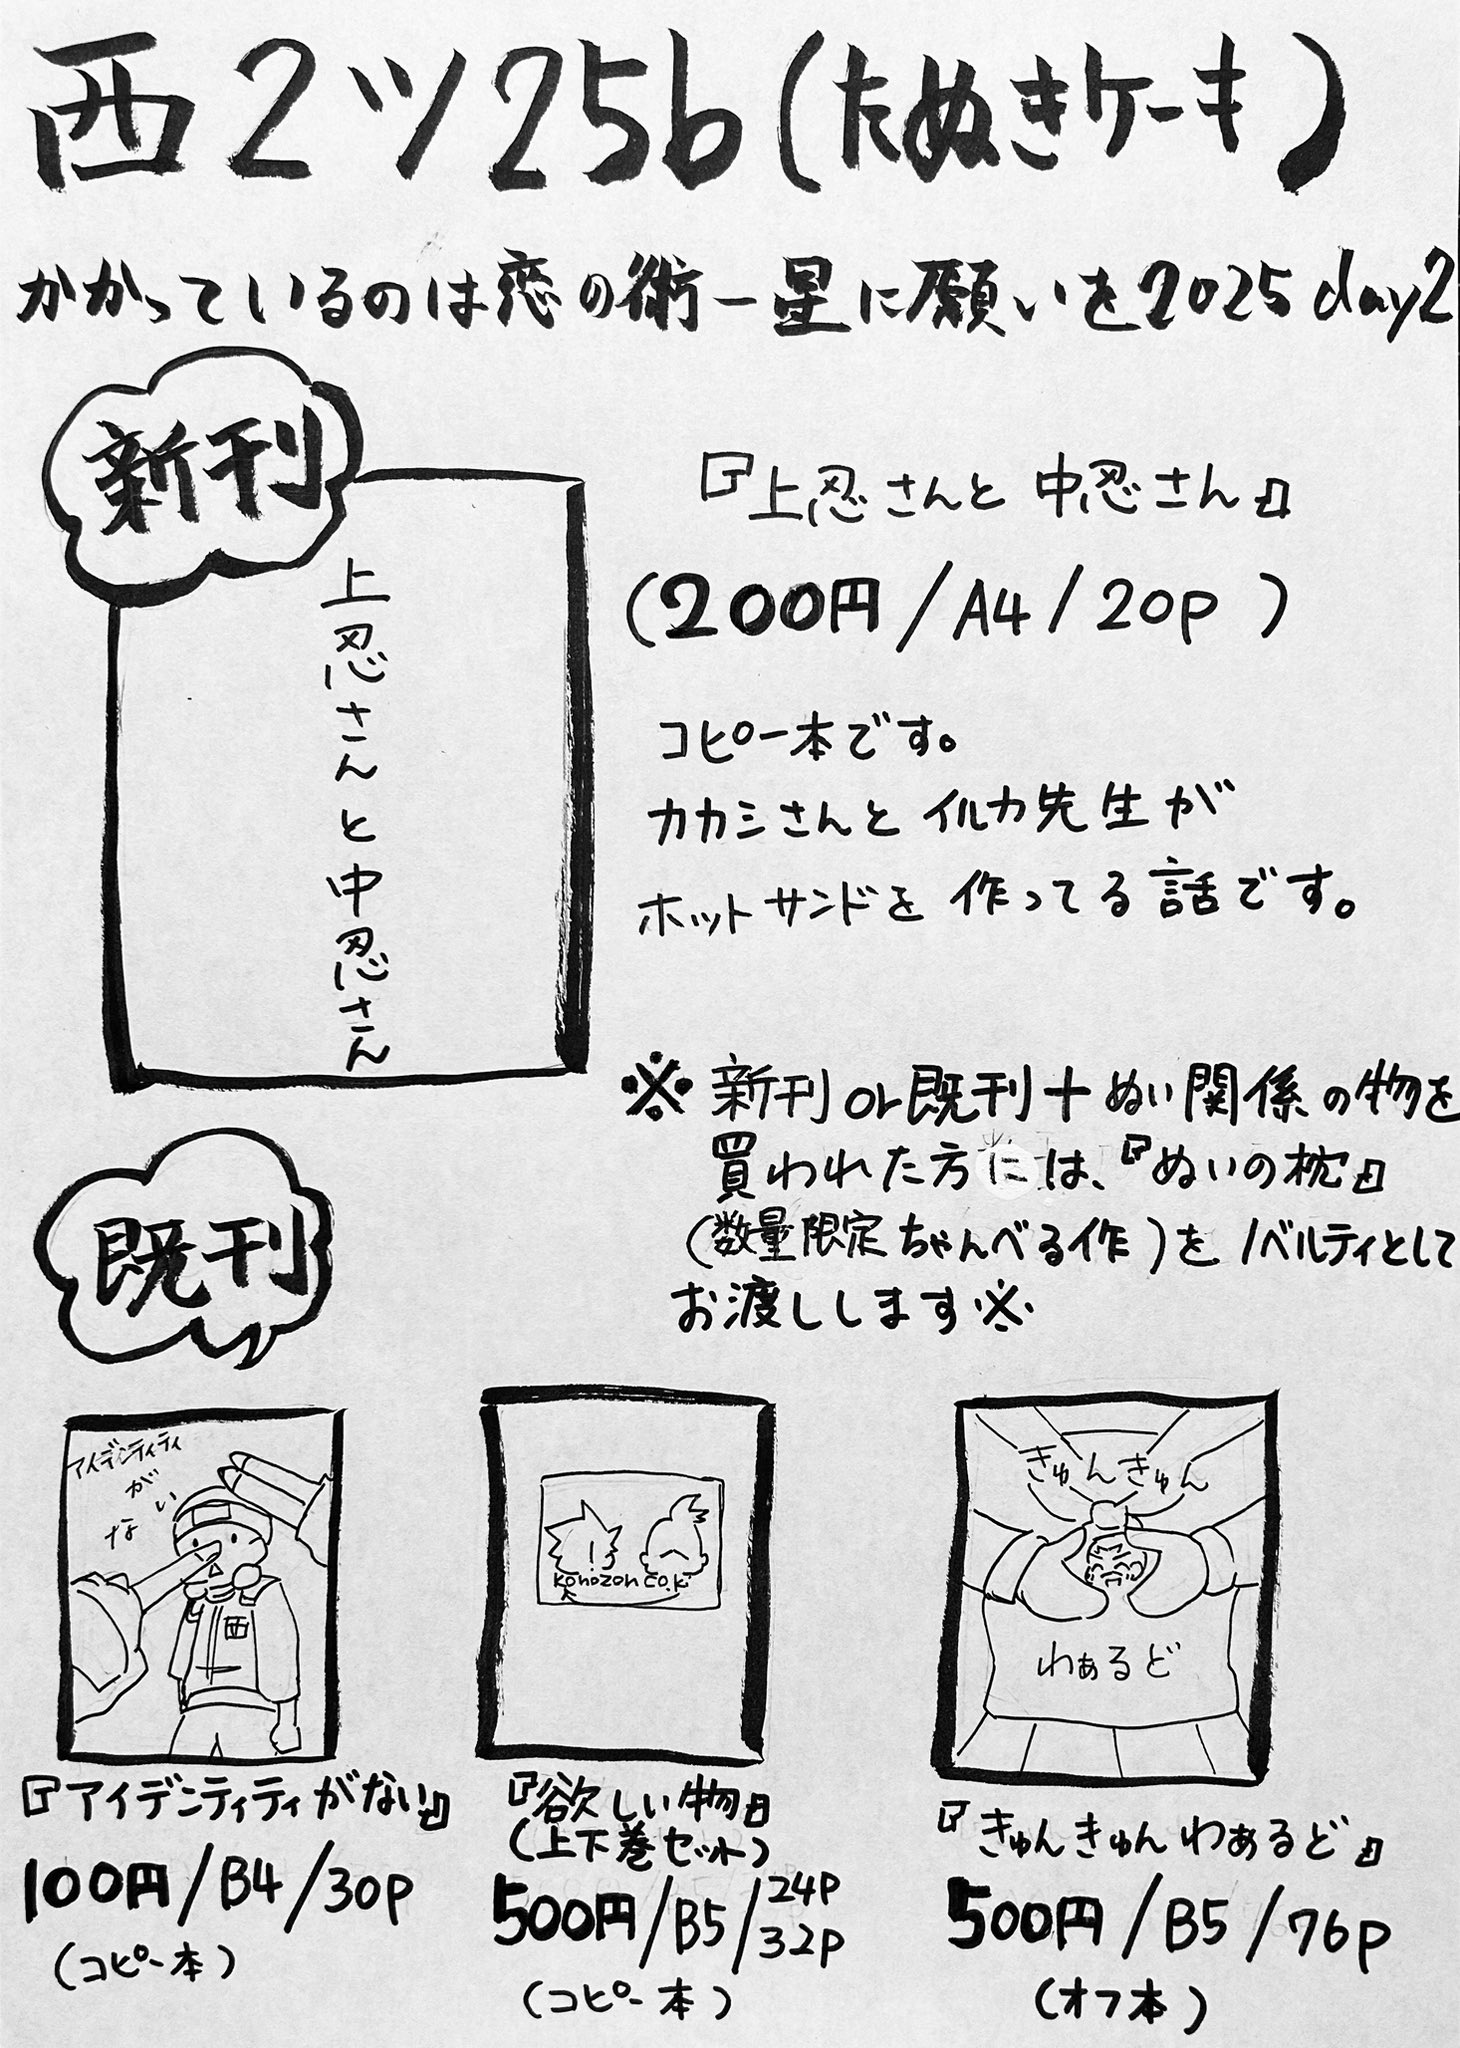 西2ツ25b(たぬきケーキ)
かかっているのは恋の術ー星に願いを2025 day2
新刊
上忍さんと中忍さん
『上忍さんと中忍さん』
(200円/A4/20p)
コピー本です。
カカシさんとイルカ先生が
ホットサンドを作ってる話です。
※新刊or既刊+ぬい関係の物を
買われた方には、『ぬいの枕』
(数量限定ちゃんべる作)をノベルティとして
お渡しします※
既刊
アイデンティティ
が
ない
西
『アイデンティティがない』
100円/B4/30p
(コピー本)
konozon co.ki
『欲しい物』
(上下巻セット)
500円/B5/24p
32p
(コピー本)
きゅんきゅん
わぁるど
『きゅんきゅんわぁるど』
500円/B5/76p
(オフ本)